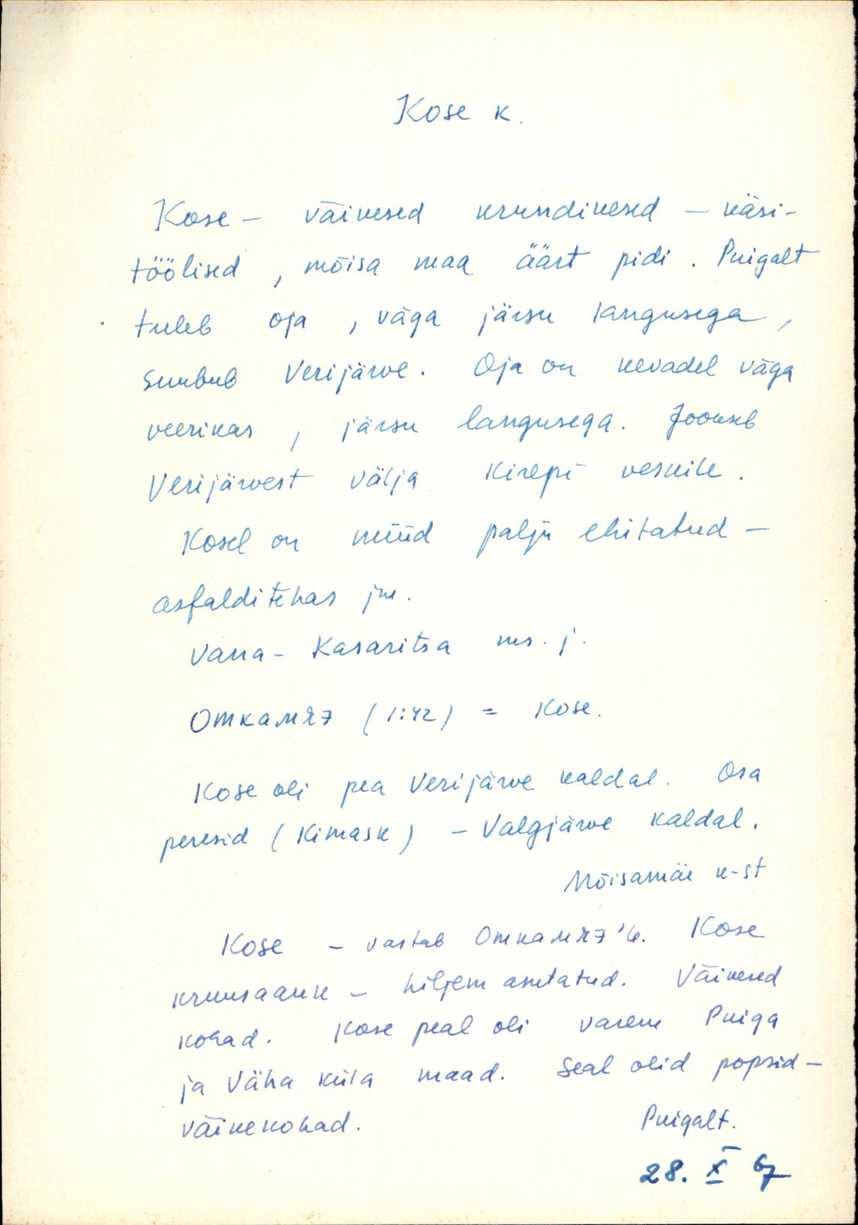 Kose k.
Kose – väikesed krundikesed – käsi-
töölised, mõisa maa äärt pidi. Puigalt
tuleb oja, väga järsu langusega,
suubub Verijärve. Oja on kevadel väga
veerikas, järsu langusega. Jookseb
Verijärvest välja Kirepi veskile.
Kosel on nüüd palju ehitatud –
asfalditehas jm.
Vana-Kasaritsa ms. j.
(1:42) = Kose.
Kose oli pea Verijärve kaldal. Osa
peresid (Kimask) – Valgjärve kaldal.
Mõisamäe k-st
Kose – vastab Kose
kruusaauk – hiljem asutatud. Väikesed
kohad. Kose peal oli varem Puiga
ja Väha küla maad. Seal olid popsid –
väikekohad. Puigalt.
28. X 67